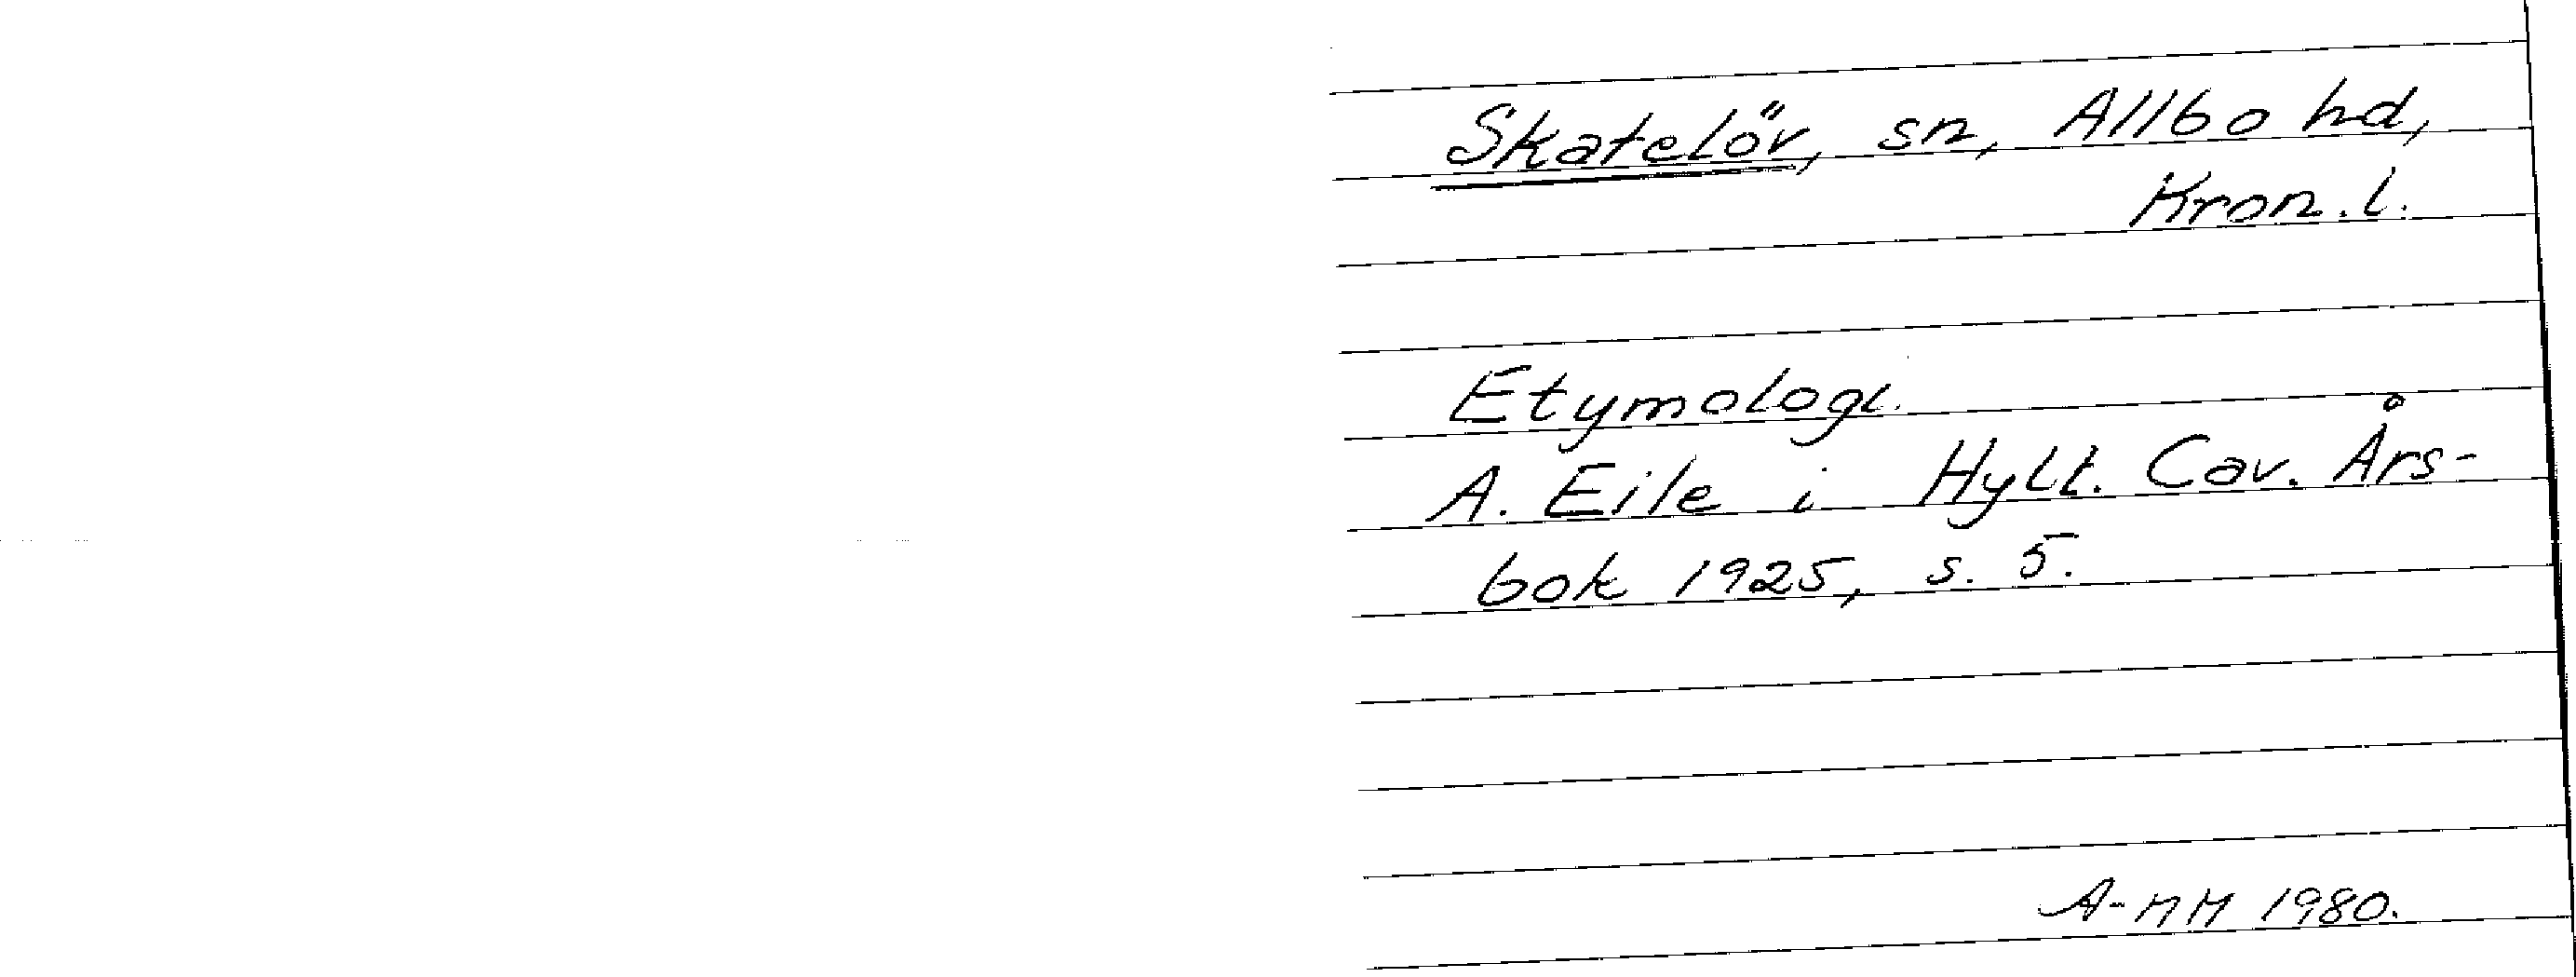 Skatelöv, sn, Allbo hd,
Kron. l.
Etymologi.
A. Eile i Hylt. Cav. Års-
bok 1925, s. 5.
A-MM 1980.